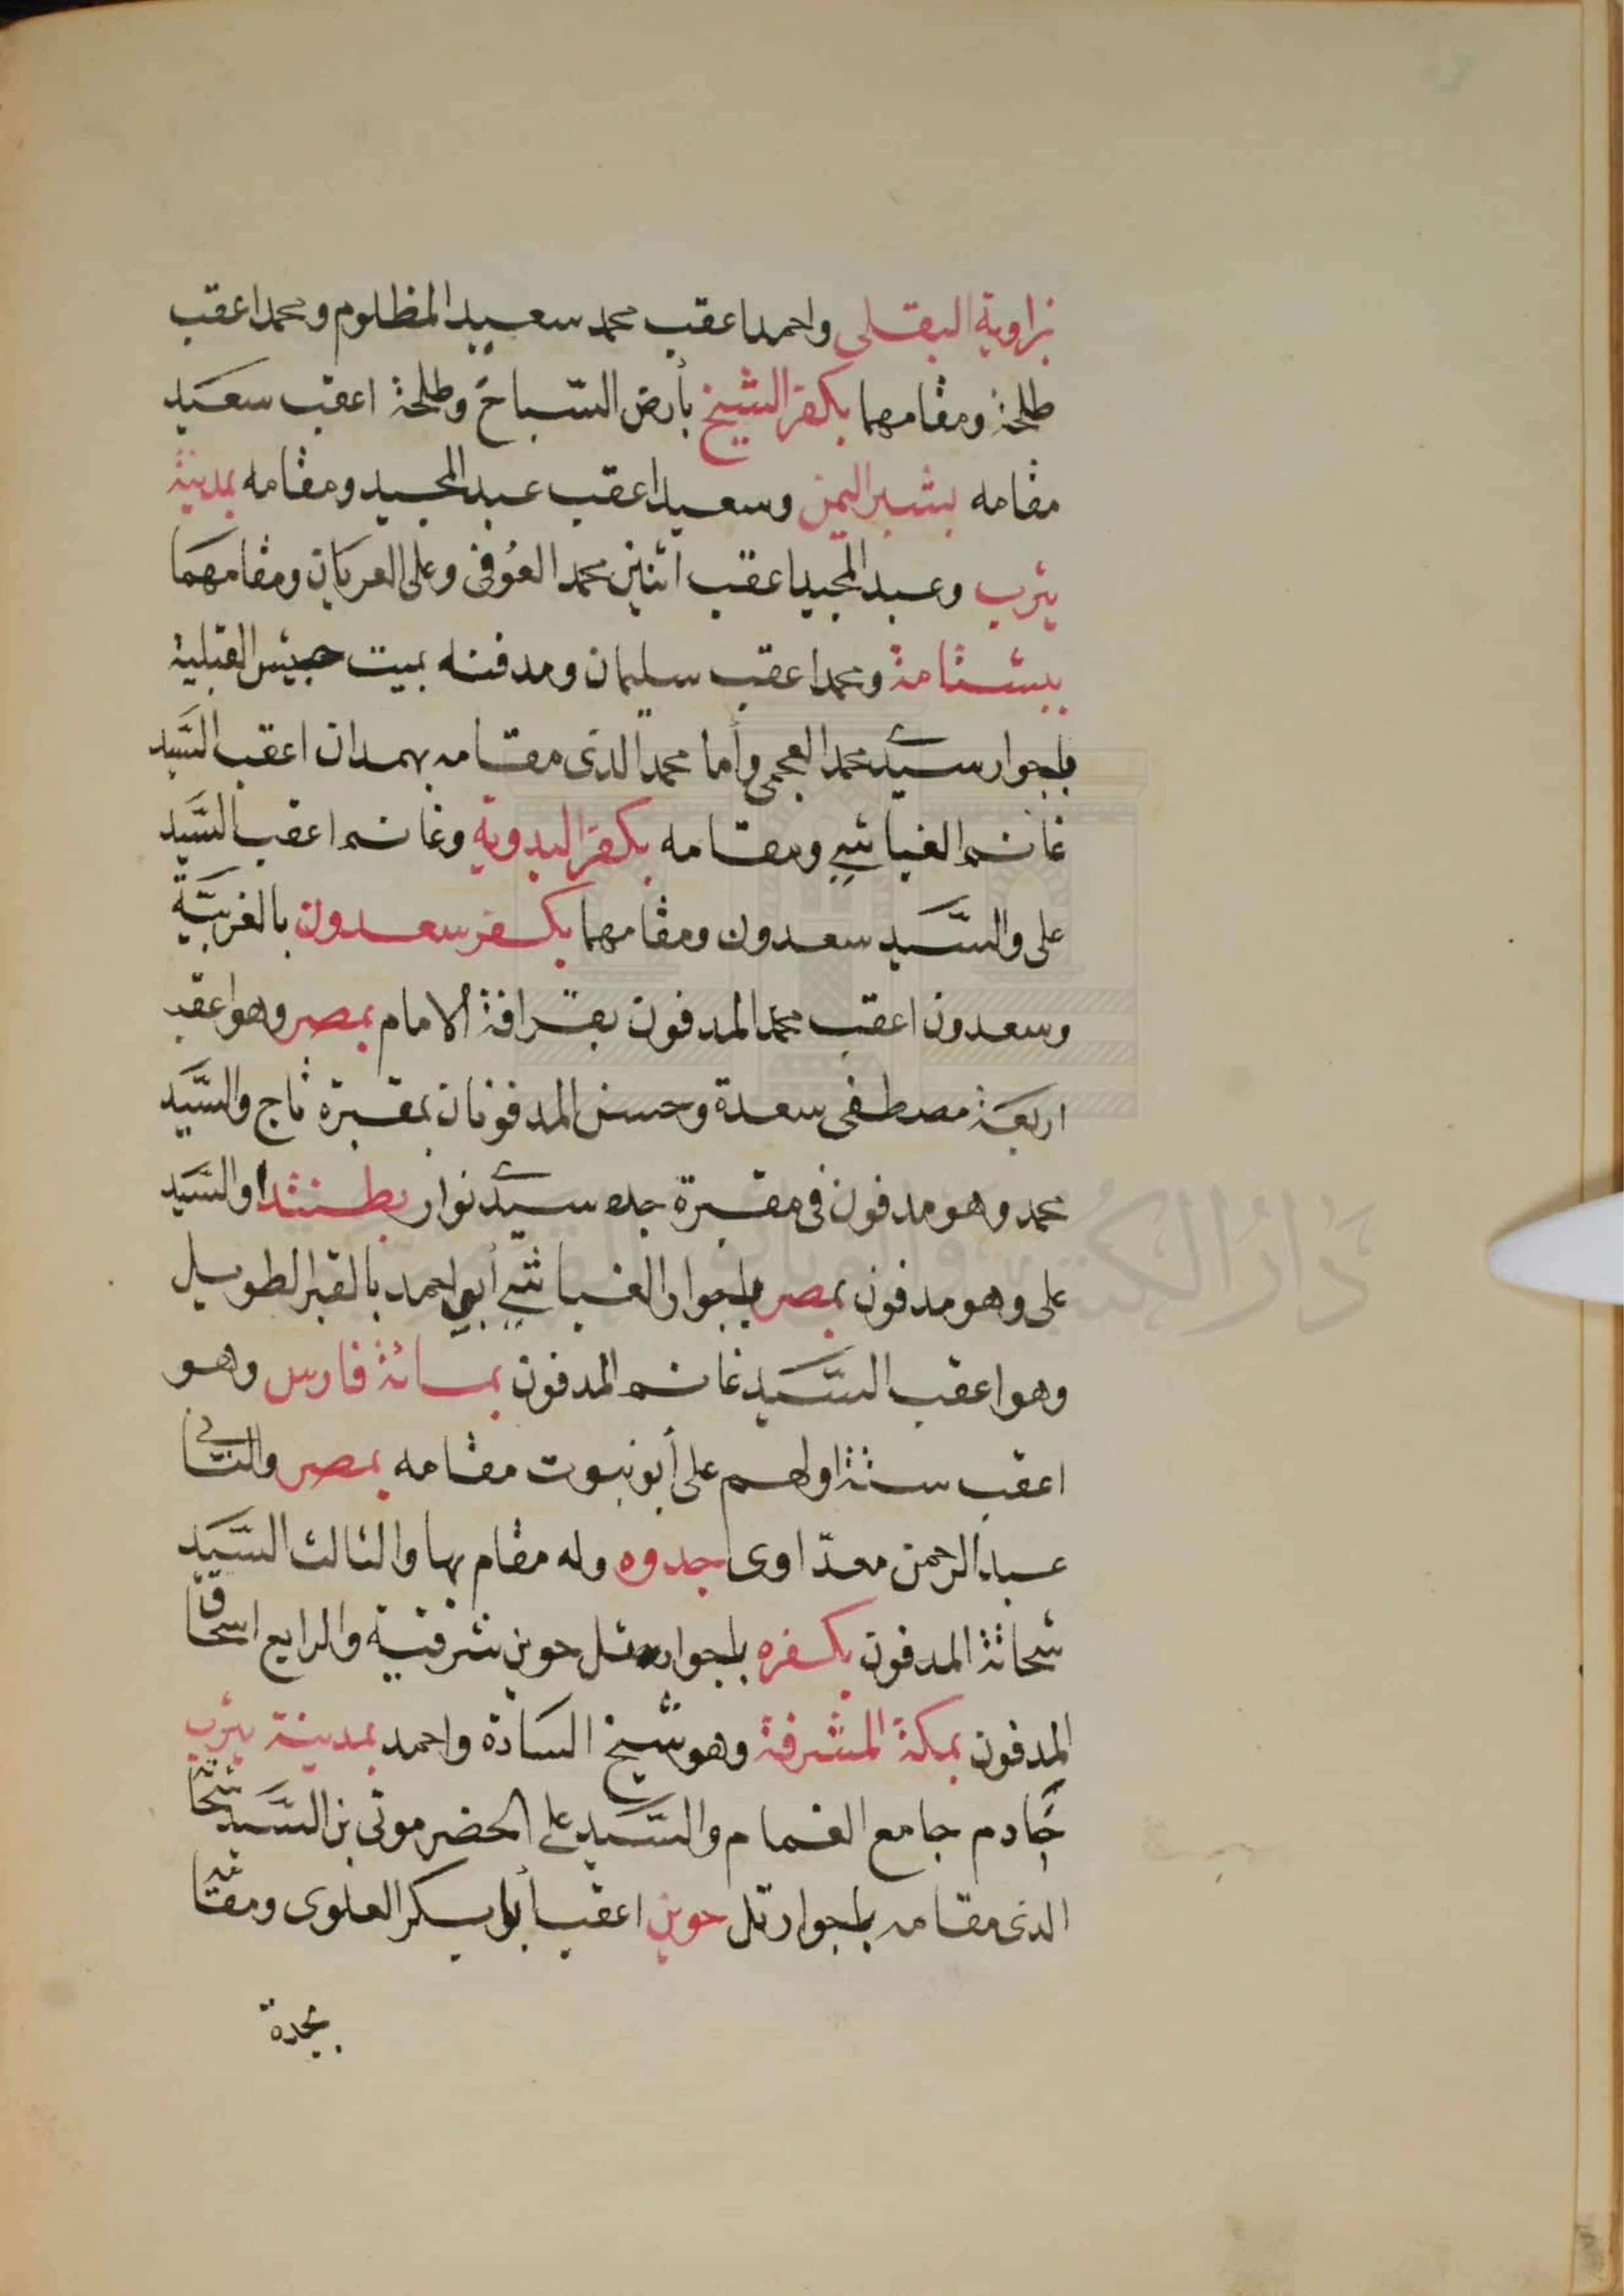 بزاوية البقلى واحمد اعقب محمد سعيد المظلوم ومحمد اعقب
طلحة ومقامهما بكفر الشيخ بأرض السباخ وطلحة اعقب سعيد
مقامه بشبر اليمن وسعيد اعقب عبد المجيد ومقامه بمدينة
يثرب وعبد المجيد اعقب اثنين محمد العوفى وعلى العريان ومقامهما
ببشتامة ومحمد اعقب سليمان ومدفنه ببيت حبيش القبلية
بلجوار سيدى محمد العجمى وأما محمد الذى مقامه بهمدان اعقب السيد
غانم الغياشى ومقامه بكفر البدوية وغانم اعقب السيد
على والسيد سعدون ومقامهما بكفر سعدون بالغربية
وسعدون اعقب محمد المدفون بقرافة الامام بمصر وهو اعقب
اربعة مصطفى سعدة وحسن المدفونان بمقبرة تاج والسيد
محمد وهو مدفون فى مقبرة جده سيدى نوار بطنتدا والسيد
على وهو مدفون بمصر بلجوار الغباشى أبى احمد بالقبر الطويل
وهو اعقب السيد غانم المدفون بمسائة فارس وهو
اعقب ستة اولهم على أبو نبوت مقامه بمصر والثانى
عبد الرحمن معداوى اجدوه وله مقام بها والثالث السيد
شحاتة المدفون بكفره بلجوار تل حوين شرقية والرابع اسحاق
المدفون بمكة المشرفة وهو شيخ السادة واحمد بمدينة يثرب
خادم جامع الغمام والسيد على الحضر موتى بن السيد شحاتة
الذى مقامه بلجوار تل حوين اعقب أبو بكر العلوى ومقامه
بجدة
دار الكتب والوثائق القومية